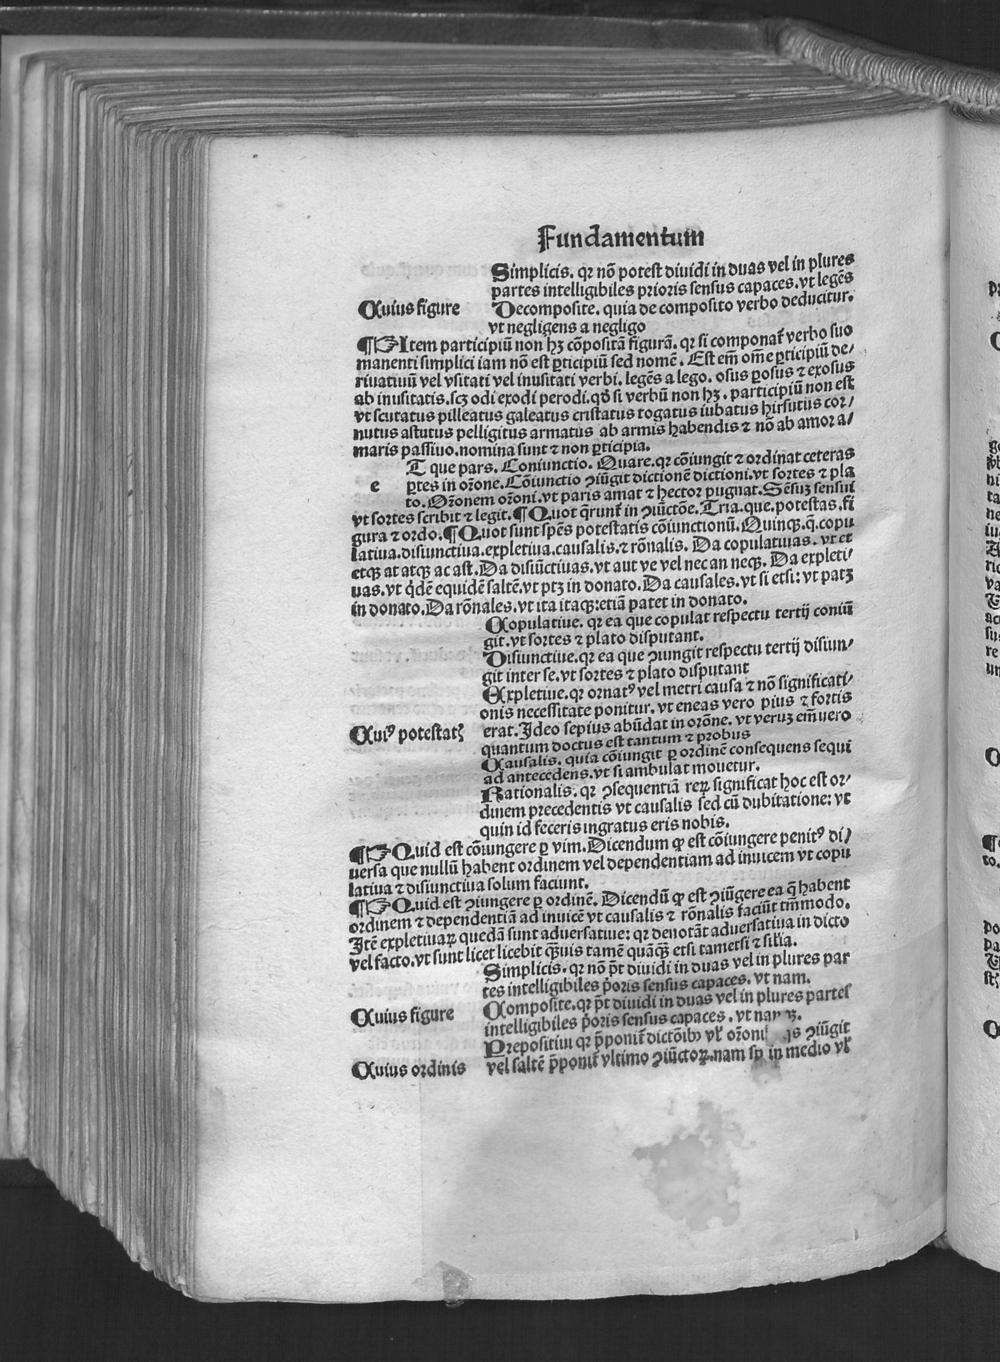 Fundamentum
Simplicis. qꝛ nō potest diuidi in duas vel in plures
partes intelligibiles prioris sensus capaces. vt legēs
Cuius figure
Decomposite. quia de composito verbo deducitur.
vt negligens a negligo
¶☞Item participiū non hꝫ cōpositā figurā. qꝛ si componat᷑ verbo suo
manenti simplici iam nō est ꝑticipiū sed nomē. Est em̄ om̄e ꝑticipiū de/
riuatiuū vel vsitati vel inusitati verbi. legēs a lego. osus ꝑosus ⁊ exosus
ab inusitatis. scꝫ odi exodi perodi. qd̛ si verbū non hꝫ. participiū non est
vt scutatus pilleatus galeatus cristatus togatus iubatus hirsutus cor/
nutus astutus pelligitus armatus ab armis habendis ⁊ nō ab amor a/
maris passiuo. nomina sunt ⁊ non ꝑticipia.
e
T que pars. Coniunctio. Quare. qꝛ cōiungit ⁊ ordinat ceteras
ꝑtes in or̄one. Cōiunctio ꝯiūgit dictionē dictioni. vt sortes ⁊ pla
to. Or̄onem or̄oni. vt paris amat ⁊ hector pugnat. Sēsuꝫ sensui
vt sortes scribit ⁊ legit. ¶Quot q̄runt᷑ in ꝯiūctōe. Tria. que. potestas. fi
gura ⁊ ordo. ¶Quot sunt spēs potestatis cōiunctionū. Quinqꝫ. q̄. copu
latiua. disiunctiua. expletiua. causalis. ⁊ rōnalis. Da copulatiuas. vt et
etqꝫ at atqꝫ ac ast. Da disiūctiuas. vt aut ve vel nec an neqꝫ. Da expleti/
uas. vt qͥdē equidē saltē. vt ptꝫ in donato. Da causales. vt si etsi: vt patꝫ
in donato. Da rōnales. vt ita itaqꝫ: etiā patet in donato.
Copulatiue. qꝛ ea que copulat respectu tertij coniū
git. vt sortes ⁊ plato disputant.
Disiunctiue. qꝛ ea que ꝯiungit respectu tertij disiun/
git inter se. vt sortes ⁊ plato disputant
Expletiue. qꝛ ornatꝰ vel metri causa ⁊ nō significati/
onis necessitate ponitur. vt eneas vero pius ⁊ fortis
Cuiꝰ potestatꝭ
erat. Ideo sepius abūdat in orōne. vt veruꝫ em̄uero
quantum doctus est tantum ⁊ probus
Causalis. quia cōiungit ꝑ ordinē consequens sequi
ad antecedens. vt si ambulat mouetur.
Rationalis. qꝛ ꝯsequentiā reꝝ significat hoc est or/
dinem precedentis vt causalis sed cū dubitatione: vt
quin id feceris ingratus eris nobis.
¶☞Quid est cōiungere ꝑ vim. Dicendum ꝙ est cōiungere penitꝰ di/
uersa que nullū habent ordinem vel dependentiam ad inuicem vt copu
latiua ⁊ disiunctiua solum faciunt.
¶☞Quid est ꝯiungere ꝑ ordinē. Dicendū ꝙ est ꝯiūgere ea q̄ habent
ordinem ⁊ dependentiā ad inuicē vt causalis ⁊ rōnalis faciūt tm̄modo.
Itē expletiuaꝝ quedā sunt aduersatiue: qꝛ denotāt aduersatiua in dicto
vel facto. vt sunt licet licebit qͣuis tamē quāqͣꝫ etsi tametsi ⁊ sil̄ia.
Simplicis. qꝛ nō p̄t diuidi in duas vel in plures par
tes intelligibiles p̄oris sensus capaces. vt nam.
Cuius figure
Composite. qꝛ p̄t diuidi in duas vel in plures partes
intelligibiles p̄oris sensus capaces. vt
Prepositiui qꝛ p̄ponit᷑ dictōibꝰ vl̛ ꝯiūgit
Cuius ordinis
vel saltē p̄ponit᷑ vltimo ꝯiūctoꝝ. nam sꝑ in medio vl̛